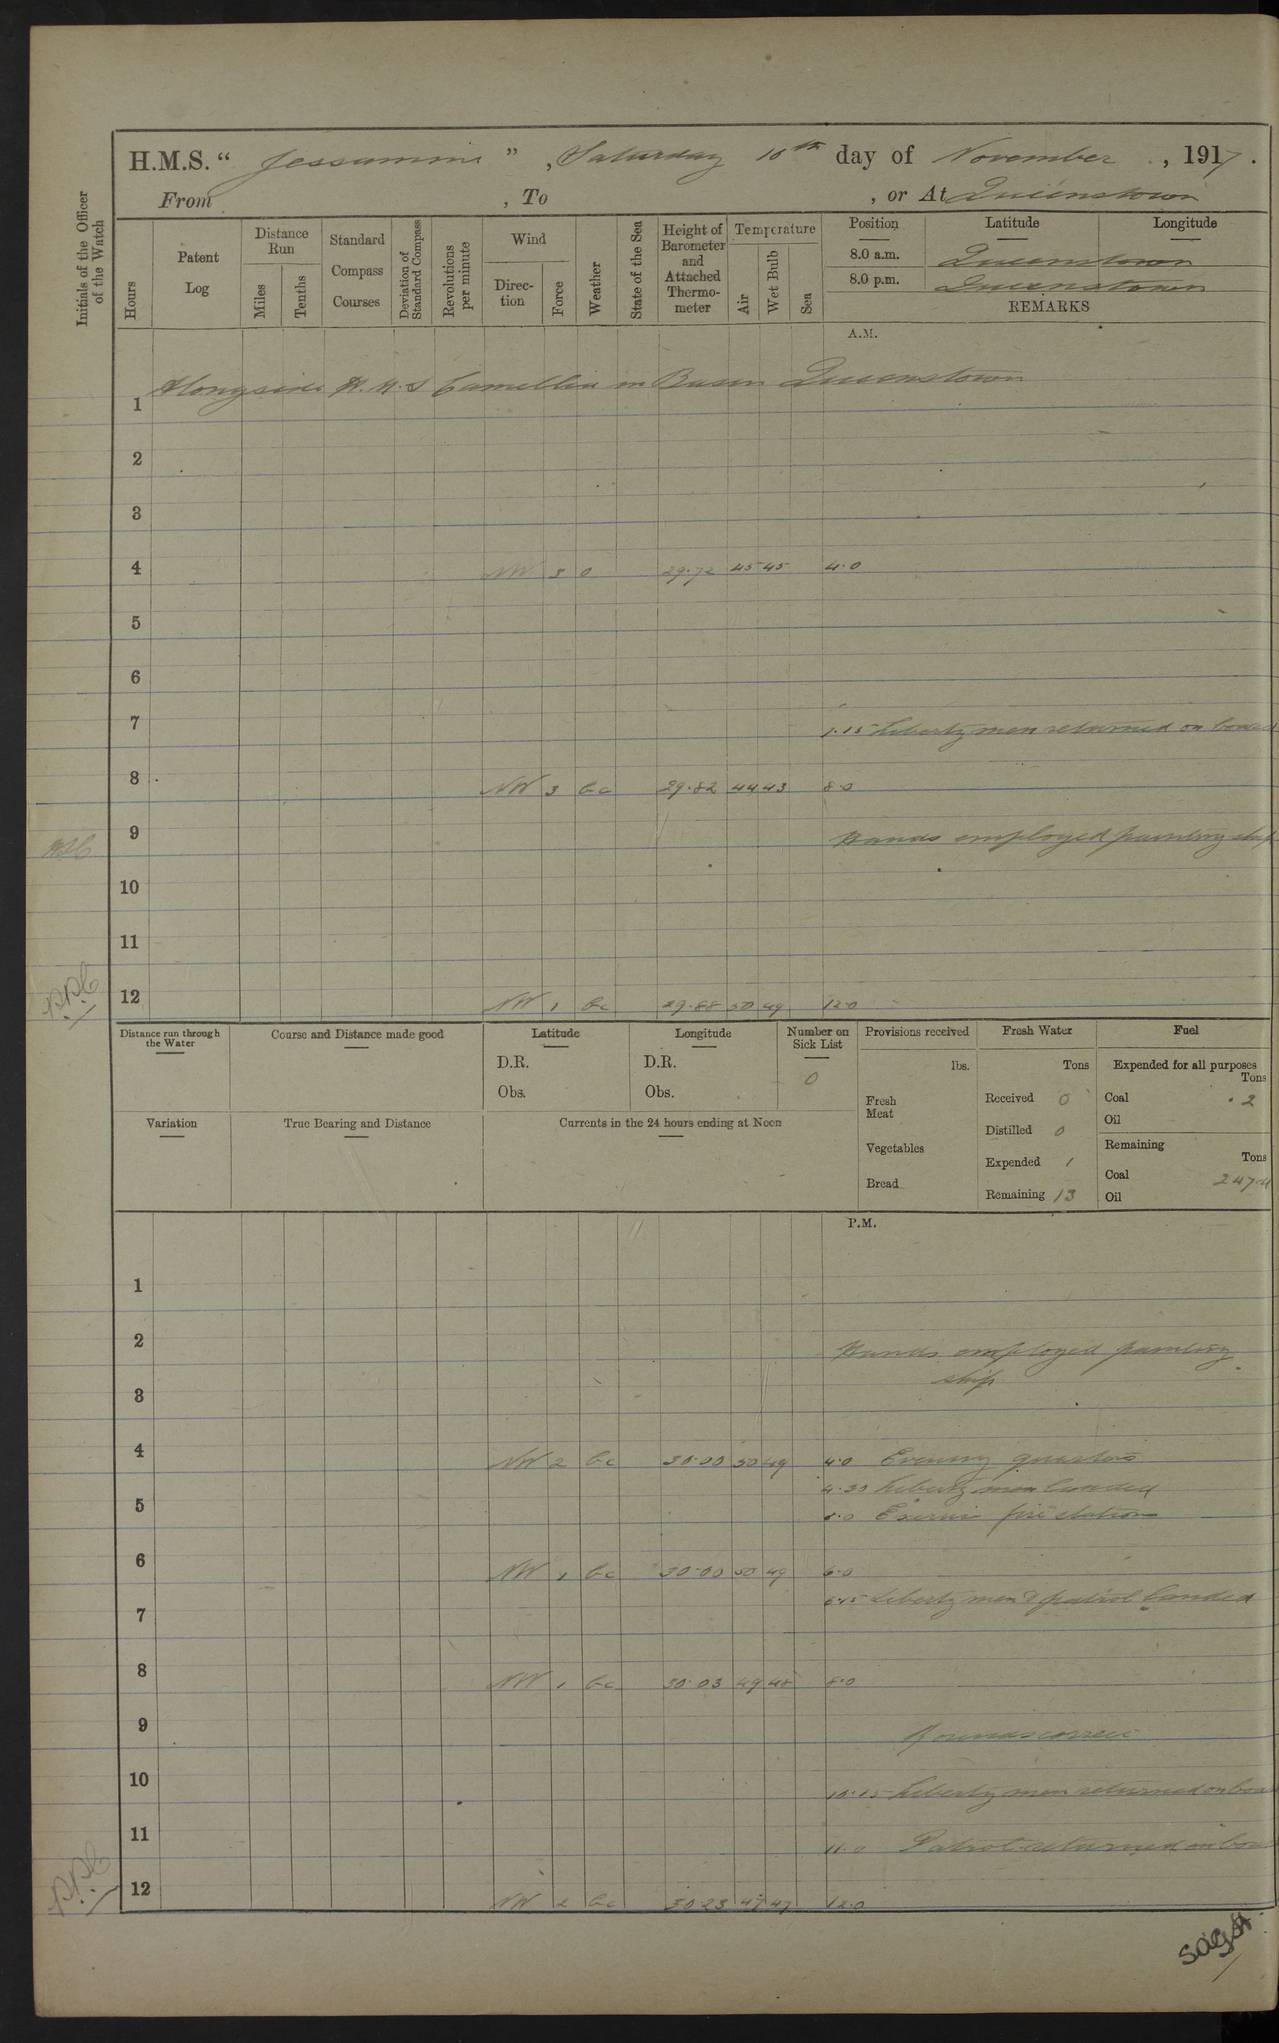 H.M.S. “ Jessamine ” , Saturday 10th day of November , 1917 .
From , To , or At Queenstown
Initials of the Officer of the Watch
Hours
Patent Log
Distance Run
Miles
Tenths
Standard Compass Courses
Deviation of Standard Compass
Revolutions per minute
Wind
Direction
Force
Weather
State of the Sea
Height of Barometer and Attached Thermometer
Temperature
Air
Wet Bulb
Sea
Position Latitude Longitude
8.0 a.m. Queenstown
8.0 p.m. Queenstown
REMARKS
A.M.
Alongside H.M.S Camellia in Basin Queenstown
1
2
3
4 NW 3 0 29.72 45 45 4.0
5
6
7 7.15 Liberty men returned on board
8 NW 3 bc 29.82 44 43 8.0
9 Hands employed painting ship
10
11
12 NW 1 bc 29.88 50 49 12.0
Distance run through the Water
Course and Distance made good
Latitude
D.R.
Obs.
Longitude
D.R.
Obs.
Number on Sick List
0
Provisions received
lbs.
Fresh Meat
Vegetables
Bread
Fresh Water
Tons
Received 0
Distilled 0
Expended 1
Remaining 13
Fuel
Expended for all purposes
Tons
Coal .2
Oil
Remaining
Tons
Coal
Oil
Variation
True Bearing and Distance
Currents in the 24 hours ending at Noon
P.M.
1
2 Hands employed painting
ship
3
4 NW 2 bc 30.00 50 49 4.0 Evening quarters
4.30 Liberty men landed
5 Exercise fire stations
6 NW 1 bc 30.00 50 49 6.0
6.15 Liberty men & patrol landed
7
8 NW 1 bc 30.03 49 48 8.0
9 Rounds correct
10 10.15 Liberty men returned on boa
11 11.0 Patrol returned on boa
12 NW 2 bc 30.23 47 47 12.0